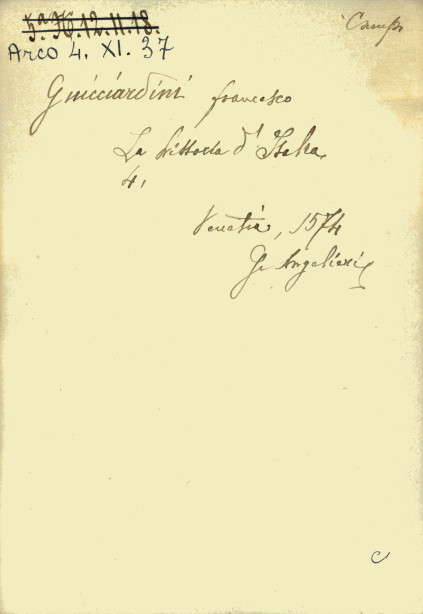 5ª. 76. 12. II. 18.
Arco 4. XI. 37
Camp.
Guicciardini francesco
La Historia d' Italia
4.
Venetia, 1574
G. Angelieri
C